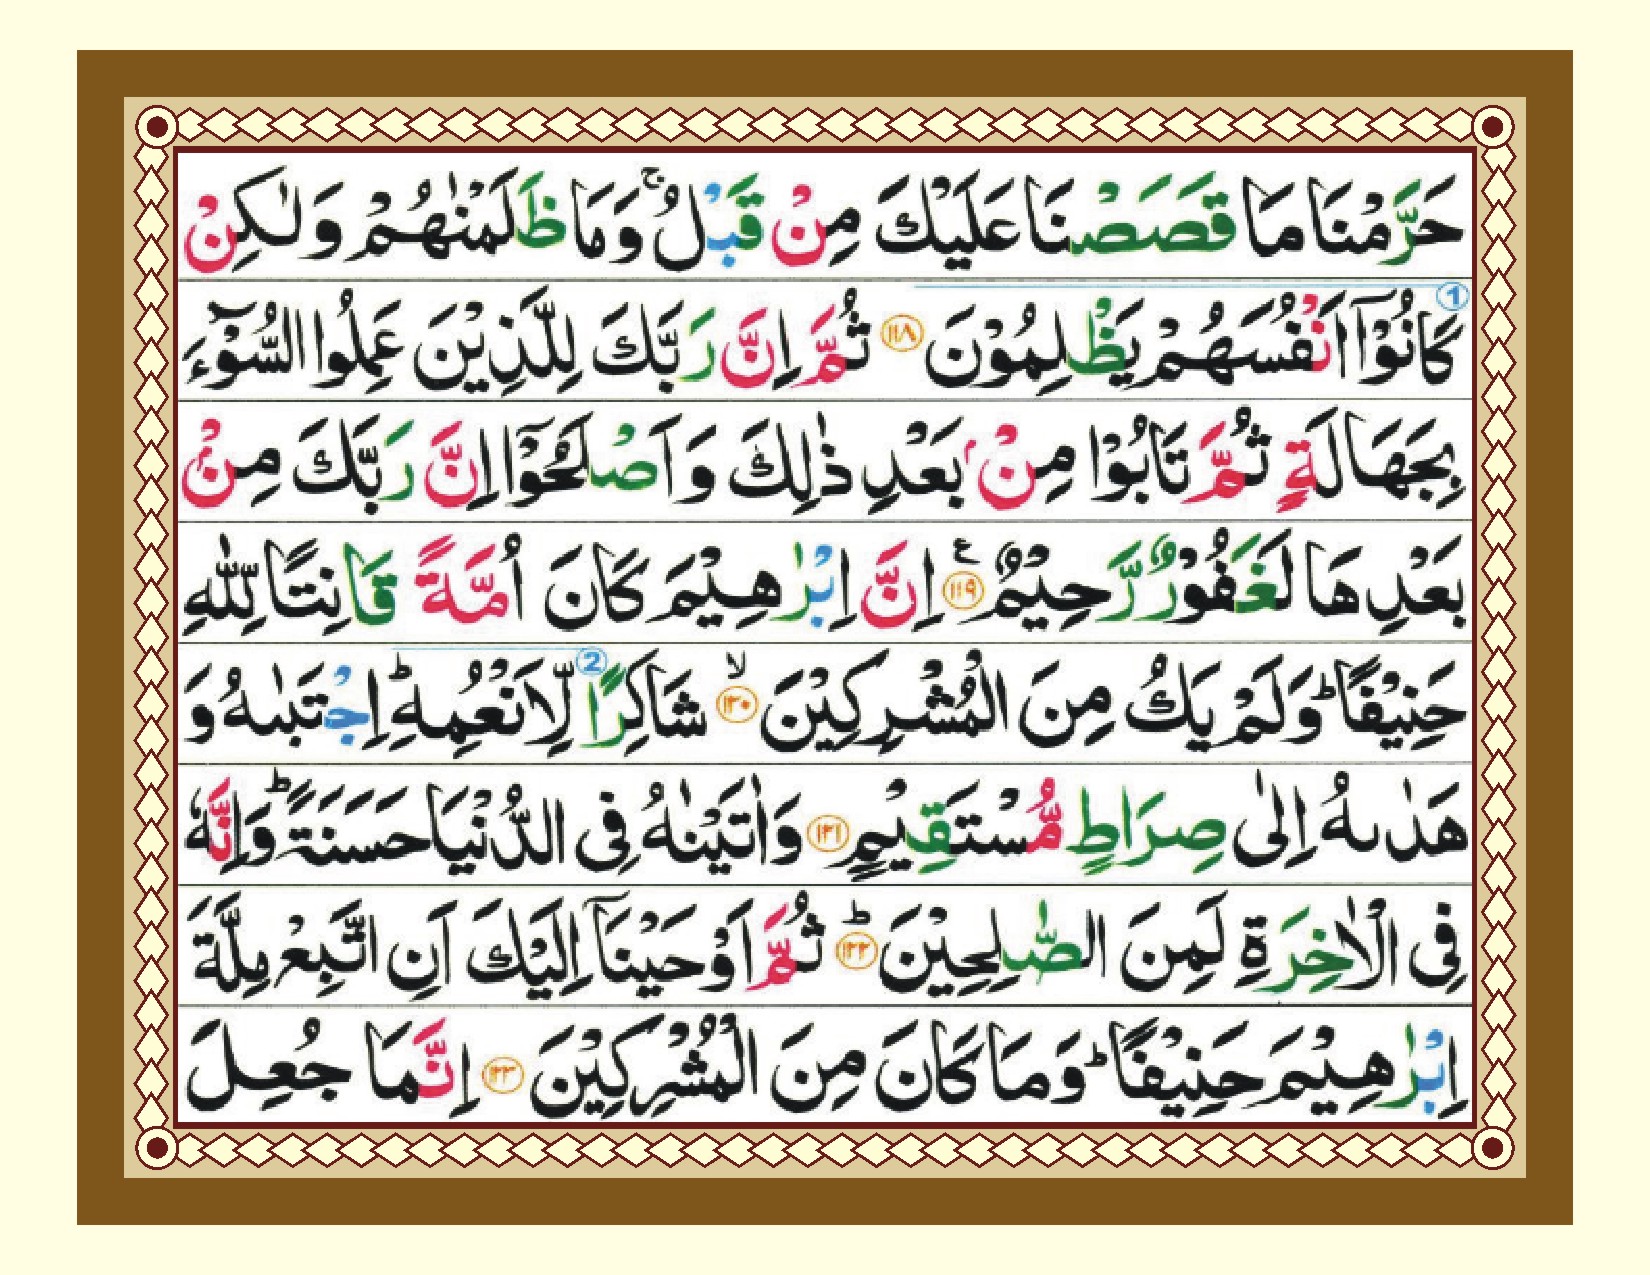 حَرَّمْنَا مَا قَصَصْنَا عَلَيْكَ مِنْ قَبْلُ ۚ وَمَا ظَلَمْنٰهُمْ وَلٰكِنْ
① كَانُوْۤا اَنْفُسَهُمْ يَظْلِمُوْنَ ۝۱۱۸ ثُمَّ اِنَّ رَبَّكَ لِلَّذِيْنَ عَمِلُوا السُّوْٓءَ
بِجَهَالَةٍ ثُمَّ تَابُوْا مِنْۢ بَعْدِ ذٰلِكَ وَاَصْلَحُوْۤا اِنَّ رَبَّكَ مِنْۢ
بَعْدِهَا لَغَفُوْرٌ رَّحِيْمٌ ۝۱۱۹ ع اِنَّ اِبْرٰهِيْمَ كَانَ اُمَّةً قَانِتًا لِّلّٰهِ
حَنِيْفًا ؕ وَلَمْ يَكُ مِنَ الْمُشْرِكِيْنَ ۙ ۝۱۲۰ شَاكِرًا ② لِّاَنْعُمِهٖ ؕ اِجْتَبٰىهُ وَ
هَدٰىهُ اِلٰى صِرَاطٍ مُّسْتَقِيْمٍ ۝۱۲۱ وَاٰتَيْنٰهُ فِى الدُّنْيَا حَسَنَةً ؕ وَاِنَّهٗ
فِى الْاٰخِرَةِ لَمِنَ الصّٰلِحِيْنَ ؕ ۝۱۲۲ ثُمَّ اَوْحَيْنَاۤ اِلَيْكَ اَنِ اتَّبِعْ مِلَّةَ
اِبْرٰهِيْمَ حَنِيْفًا ؕ وَمَا كَانَ مِنَ الْمُشْرِكِيْنَ ۝۱۲۳ اِنَّمَا جُعِلَ